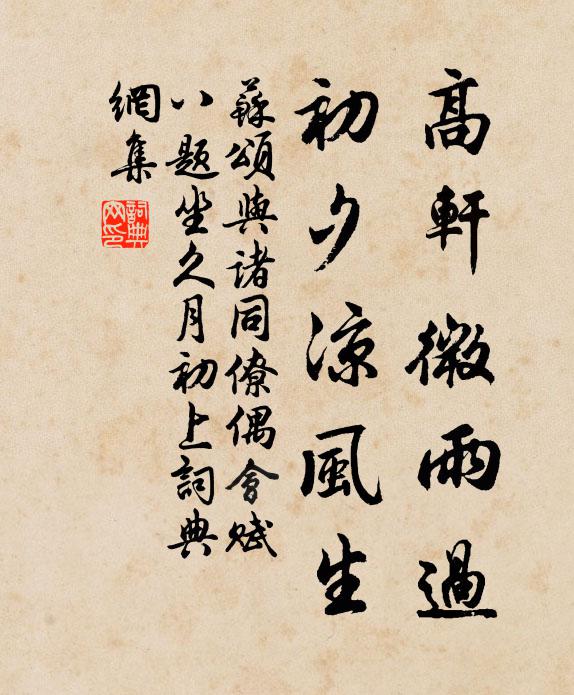 高軒微雨過
初夕涼風生
蘇頌與諸同僚偶會賦
八題坐久月初上詞典
網集
詞典
网印